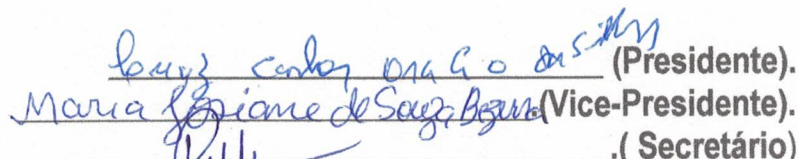 Luiz Carlos da Silva (Presidente).
Maria Joziane de Souza Bezerra (Vice-Presidente).
.( Secretário)